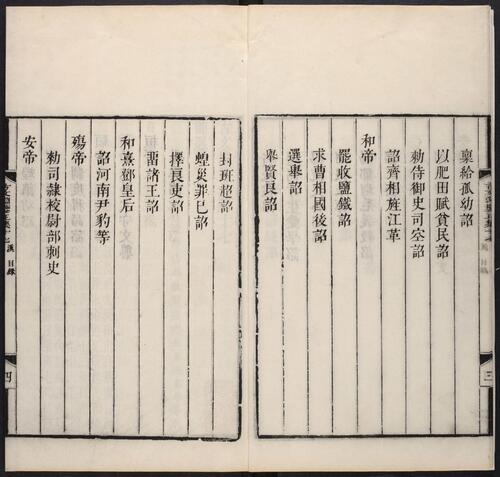 稟給孤幼詔
以肥田賦貧民詔
勑侍御史司空詔
詔齊相旌江革
和帝
罷收鹽鐵詔
求曹相國後詔
選舉詔
舉賢良詔
三
封班超詔
蝗災罪己詔
擇良吏詔
畱諸王詔
和熹鄧皇后
詔河南尹豹等
殤帝
勑司隸校尉部刺史
安帝
目錄
四